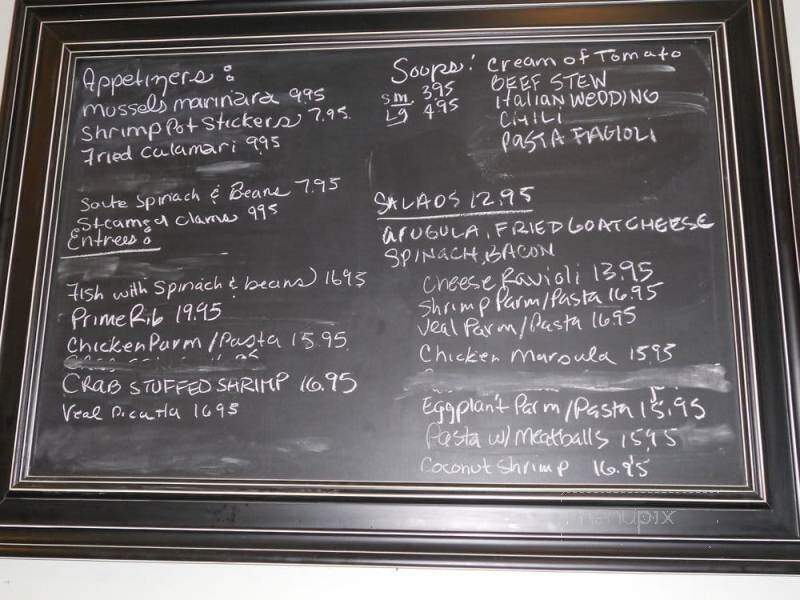 Appetizers:
Mussels marinara 995
Shrimp Pot Stickers 7.95
Fried Calamari 995
Soute Spinach & Beans 7.95
Steamed Clams 995
Entrees:
Fish with Spinach & beans) 1695
Prime Rib 19.95
Chicken Parm/Pasta 15.95
CRAB STUFFED SHRIMP 16.95
Veal Picatta 1695
Soops: Cream of Tomato
sm 3.95 BEEF STEW
Lg 4.95 Italian WEDDING
CHILI
PASTA FAGIOLI
SALADS 12.95
ARUGULA, FRIED GOAT CHEESE
SPINACH, BACON
Cheese Ravioli 13.95
Shrimp Parm/Pasta 16.95
Veal Parm/Pasta 16.95
Chicken Marsula 1595
Eggplant Parm/Pasta 15.95
Pasta w/ Meatballs 1595
Coconut Shrimp 16.95
menupix